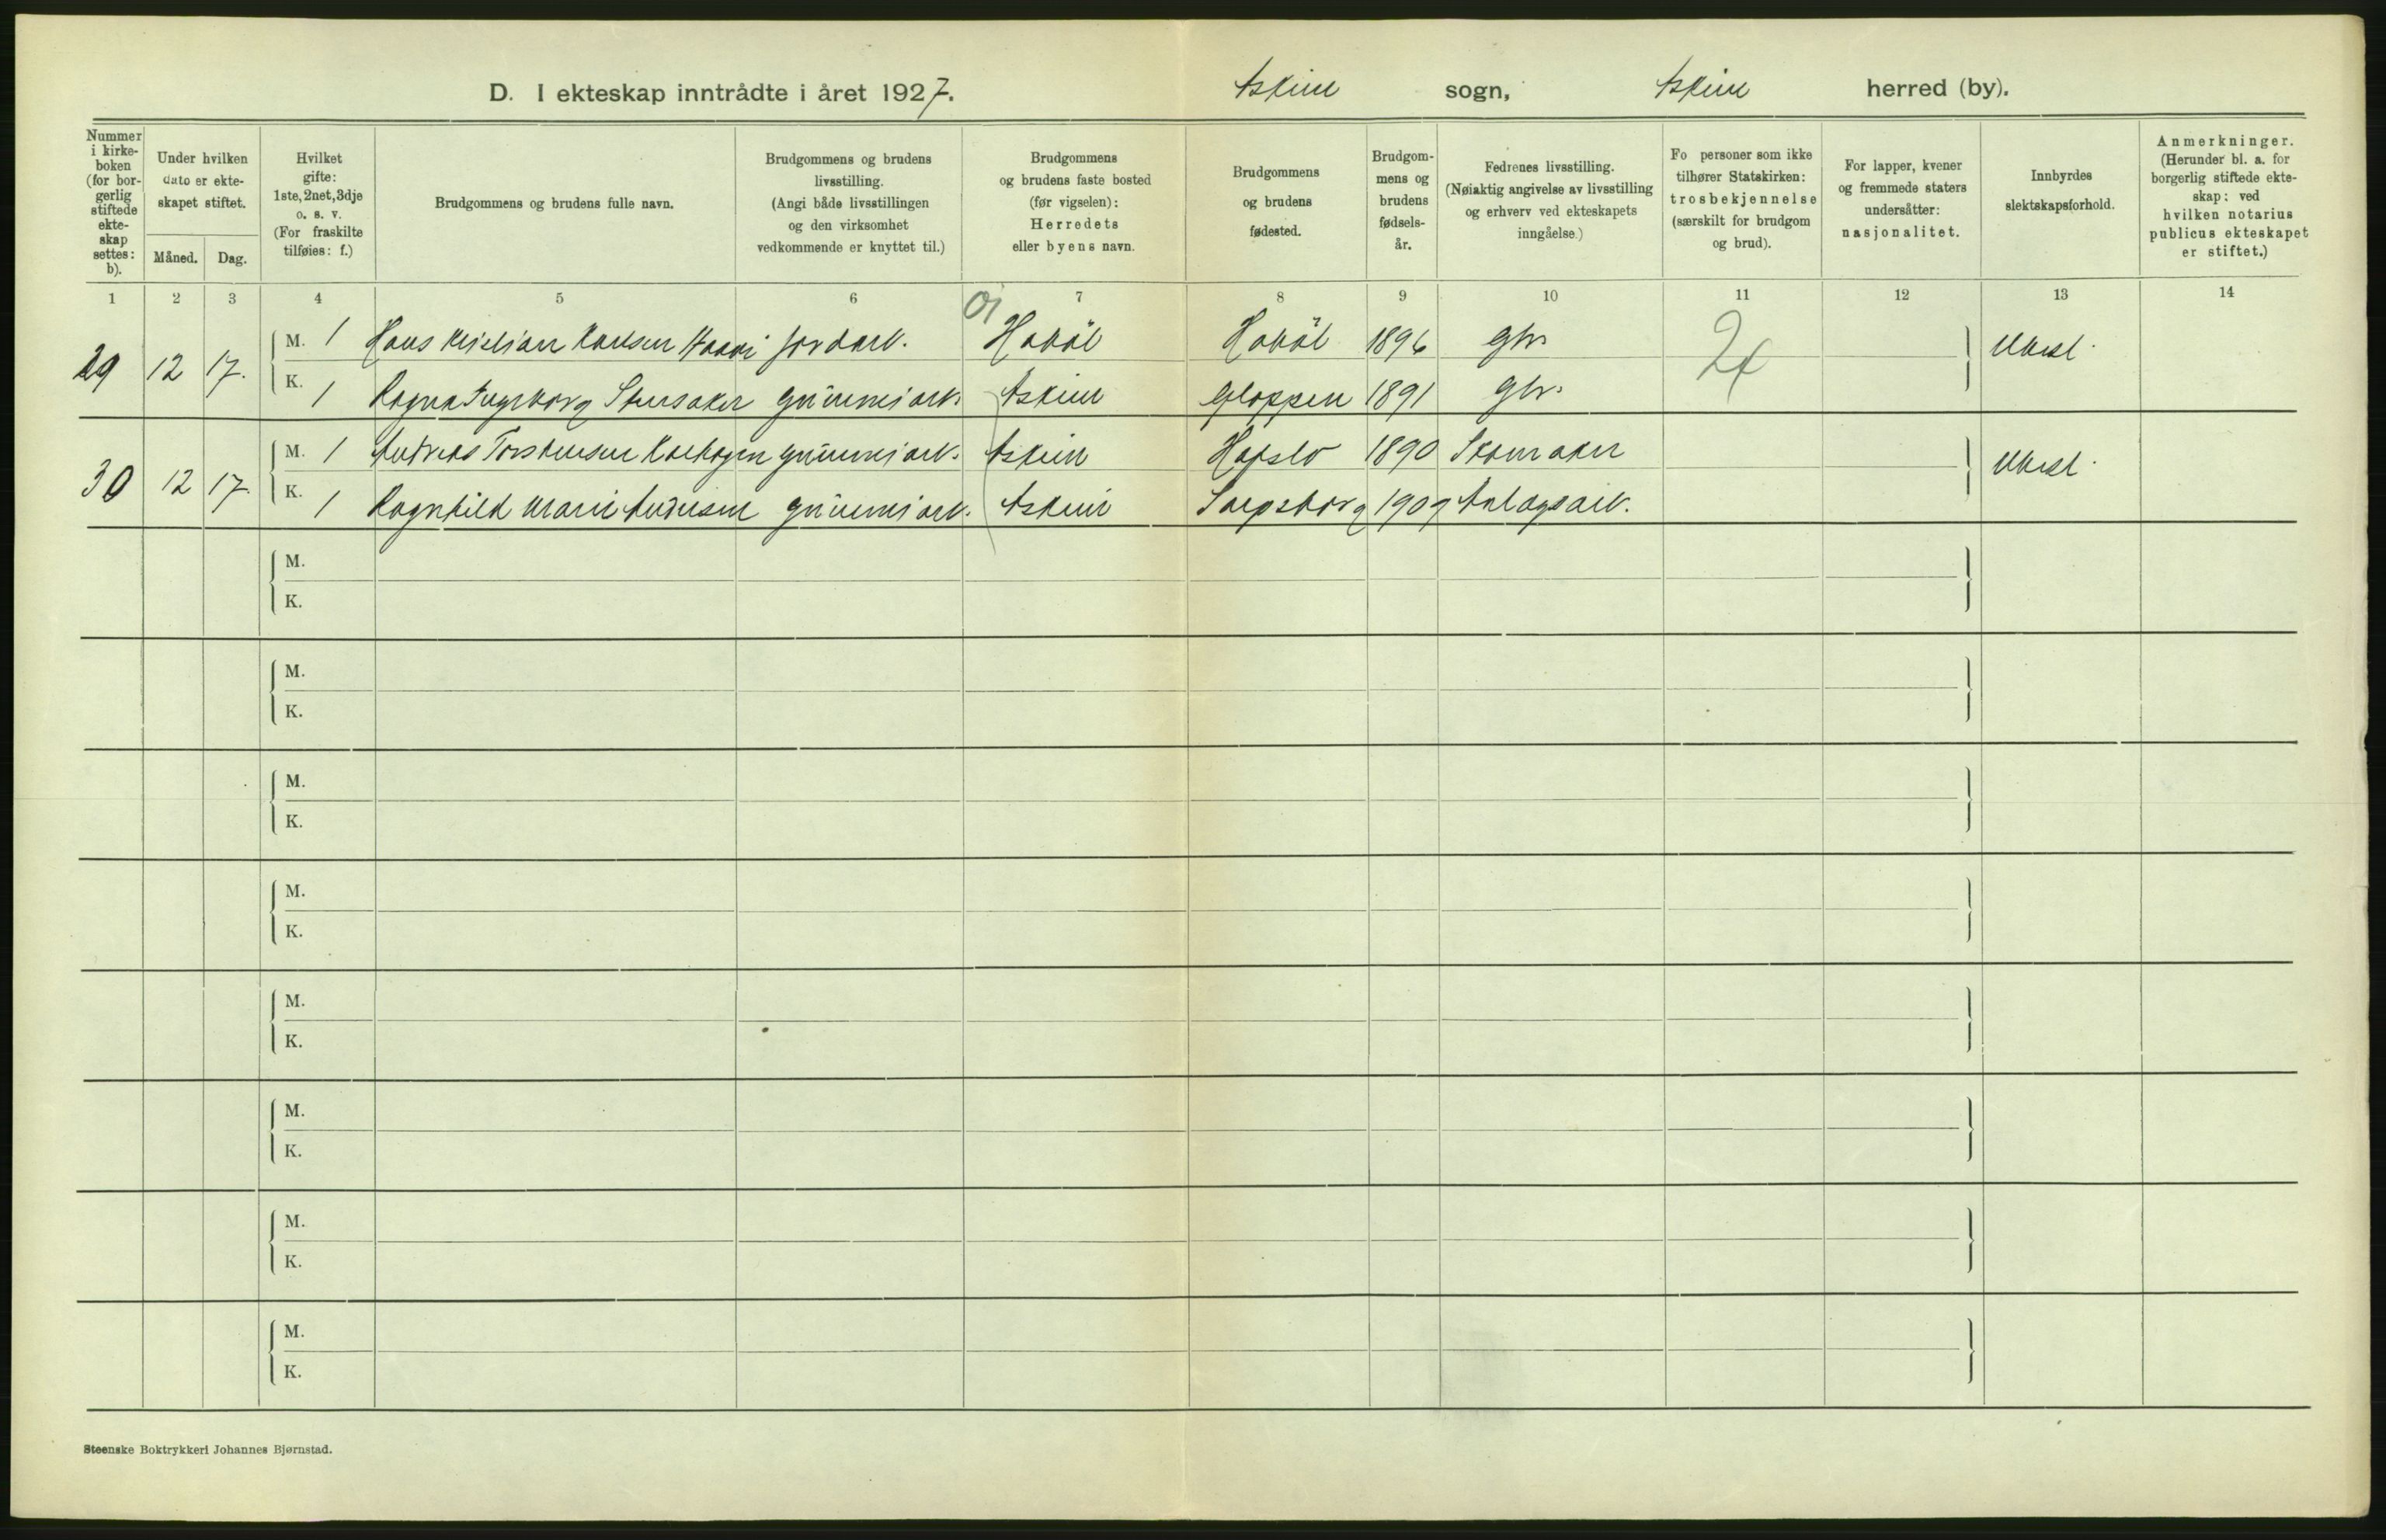 D. I ekteskap inntrådte i året 1927. Askim sogn, Askim herred (by).
Nummer
i kirke-
boken
(for bor-
gerlig
stiftede
ekte-
skap
settes:
b).
Under hvilken
dato er ekte-
skapet stiftet.
Måned. Dag.
Hvilket
gifte:
1ste, 2net, 3dje
o. s. v.
(For fraskilte
tilføies: f.)
Brudgommens og brudens fulle navn.
Brudgommens og brudens
livsstilling.
(Angi både livsstillingen
og den virksomhet
vedkommende er knyttet til.)
Brudgommens
og brudens faste bosted
(før vigselen):
Herredets
eller byens navn.
Brudgommens
og brudens
fødested.
Brudgom-
mens og
brudens
fødsels-
år.
Fedrenes livsstilling.
(Nøiaktig angivelse av livsstilling
og erhverv ved ekteskapets
inngåelse.)
Fo personer som ikke
tilhører Statskirken:
trosbekjennelse
(særskilt for brudgom
og brud).
For lapper, kvener
og fremmede staters
undersåtter:
nasjonalitet.
Innbyrdes
slektskapsforhold.
Anmerkninger.
(Herunder bl. a. for
borgerlig stiftede ekte-
skap: ved
hvilken notarius
publicus ekteskapet
er stiftet.)
1 2 3 4 5 6 7 8 9 10 11 12 13 14
29 12 17. M. 1 Hans Kristian Karlsen Haavi jordarb. Hobøl Hobøl 1896 gbr. Ubesl.
K. 1 Ragna Ingeborg Stensaker gummiarb. Askim Gloppen 1891 gbr.
30 12 17. M. 1 Andreas Torstensen gummiarb. Askim Hafslo 1890 Skomaker Ubesl.
K. 1 Ragnhild Marie Andersen gummiarb. Askim Sarpsborg 1909 Anlagsarb.
M.
K.
M.
K.
M.
K.
M.
K.
M.
K.
M.
K.
M.
K.
M.
K.
Steenske Boktrykkeri Johannes Bjørnstad.